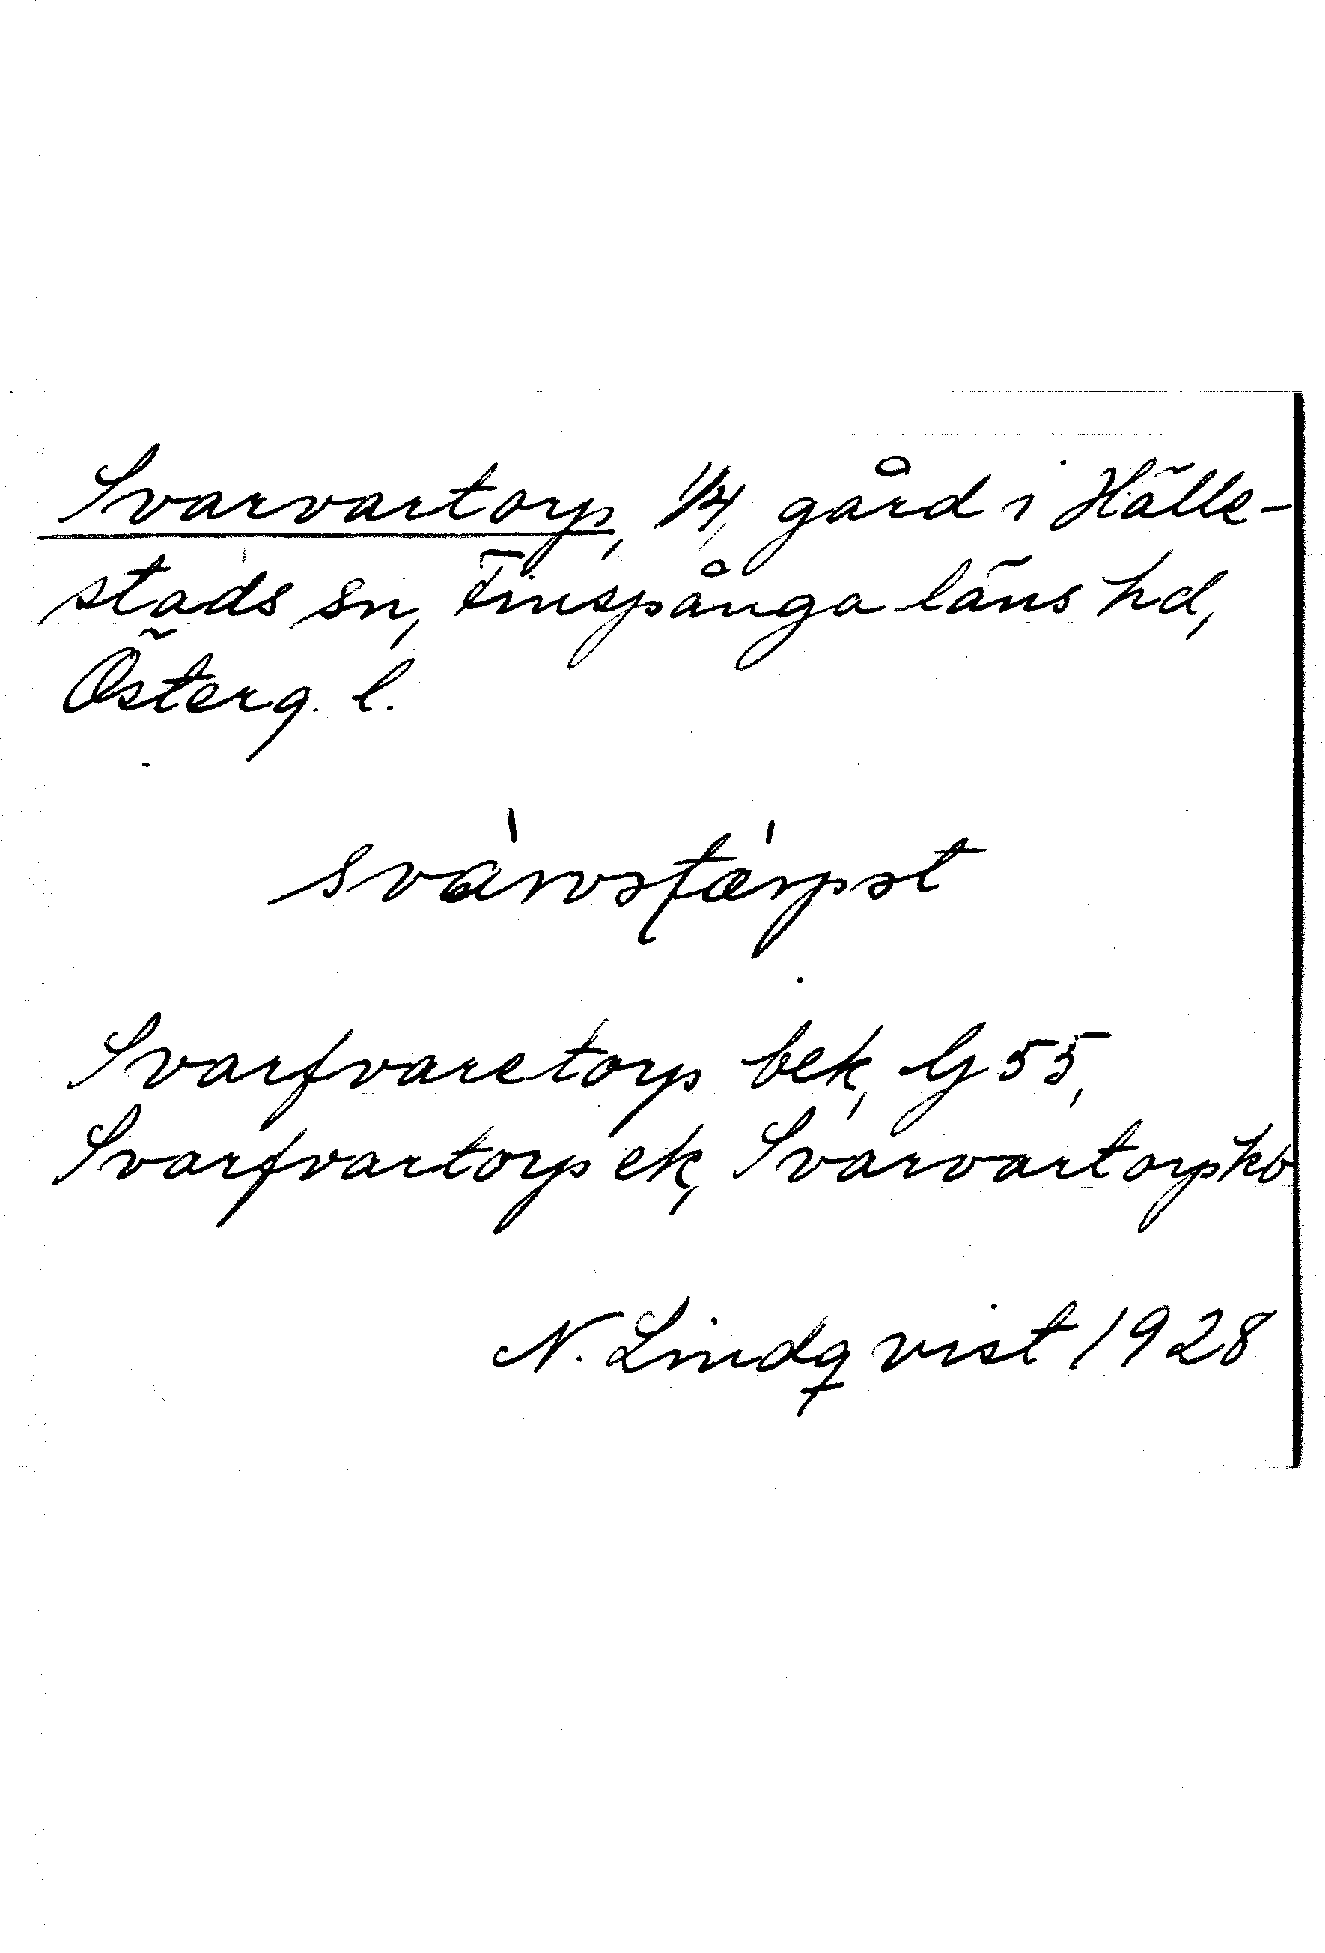 Svarvartorp, 1/4, gård i Hälle-
stads sn, Finspånga läns hd,
Österg. l.
Svarfvaretorp bek, G 55,
Svarfvartorp ek, Svarvartorp kb
N. Lindqvist 1928